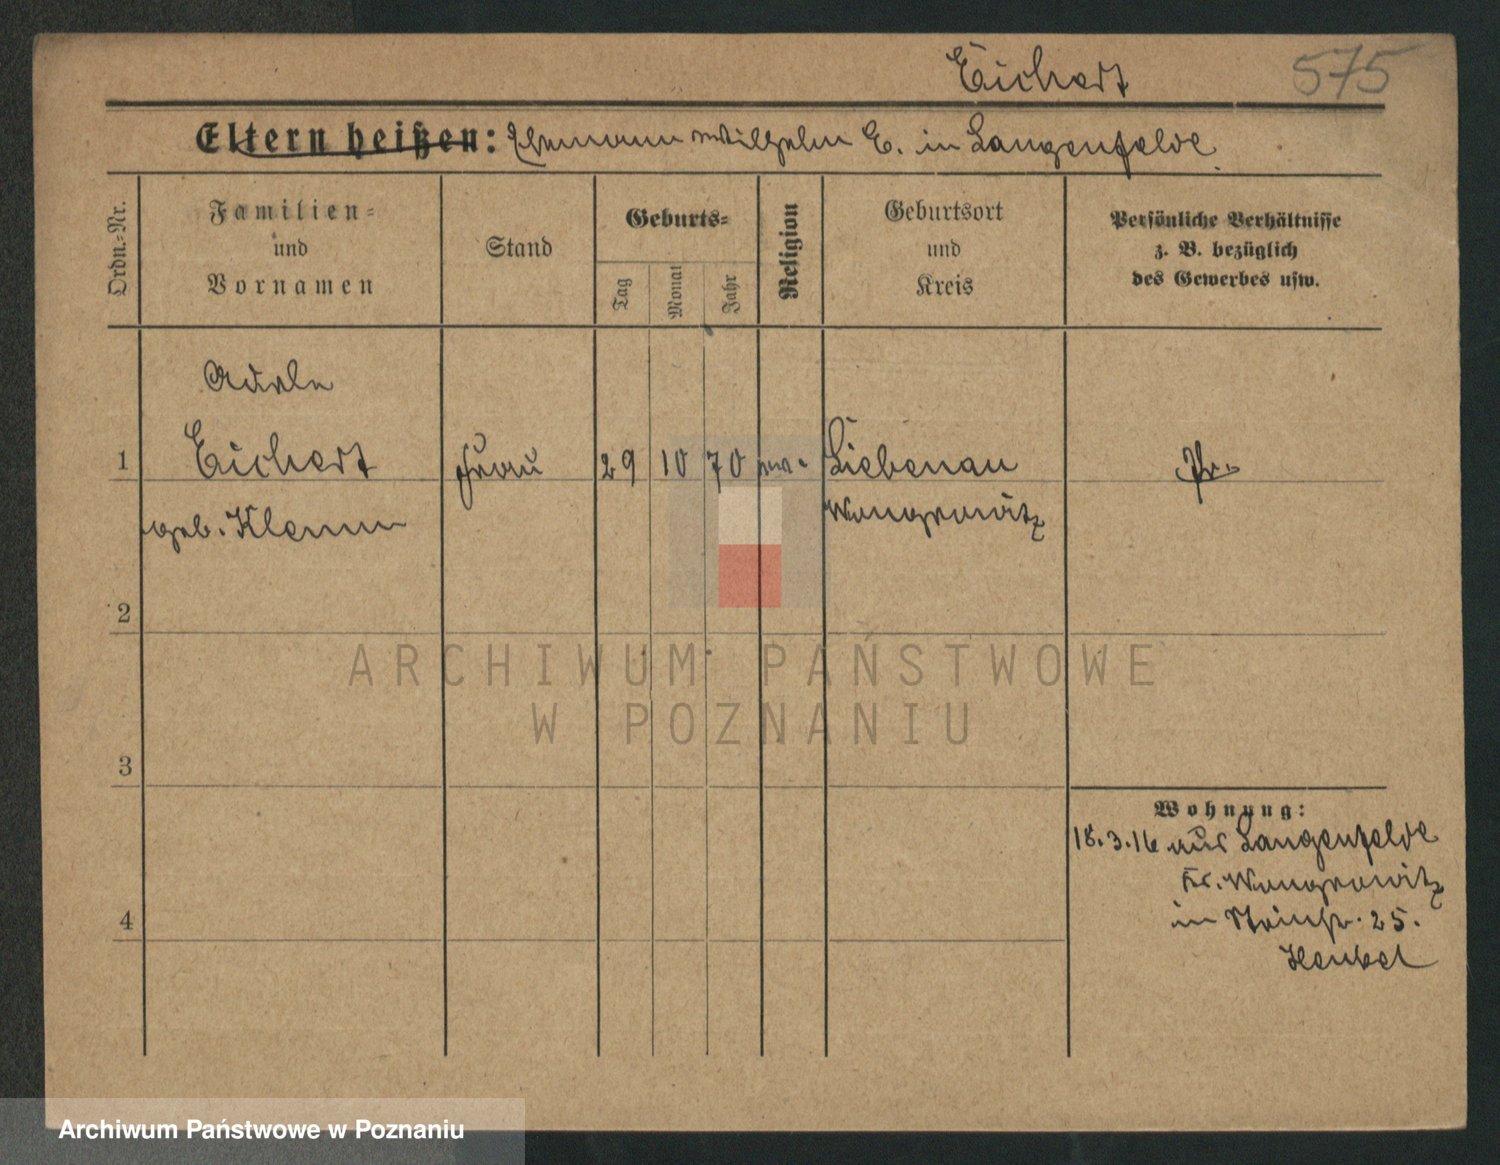 Eichert 575
Eltern heißen: Ehemann Wilhelm E. in Langenfelde.
Ordn.-Nr.
Familien-
und
Vornamen
Stand
Geburts-
Tag
Monat
Jahr
Religion
Geburtsort
und
Kreis
Persönliche Verhältnisse
z. B. bezüglich
des Gewerbes usw.
1
Adele
Eichert
geb. Klemm
Frau
29 10 70 ev.
Liebenau
Wongrowitz
Pr.
2
3
4
Wohnung:
18.3.16 aus Langenfelde
Kr. Wongrowitz
in 25.
Henkel
ARCHIWUM PAŃSTWOWE
W POZNANIU
Archiwum Państwowe w Poznaniu